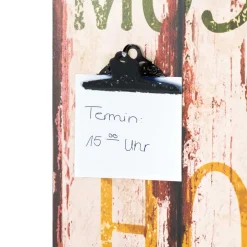 MUS
Termin:
15 ⁰⁰ Uhr
HO